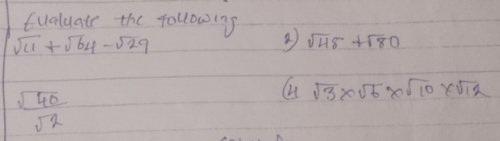 Evaluate the following
√4 + √64 - √29 2) √45 + √80
√40 / √2 (4 √3 × √6 × √10 × √12